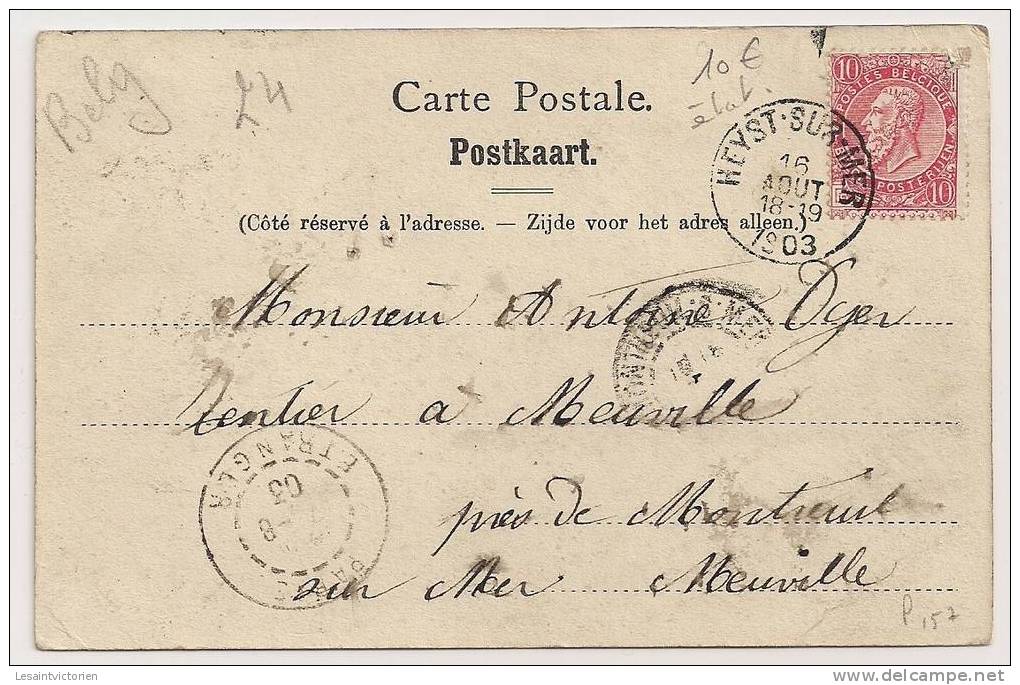 Belg
24
10 €
état.
Carte Postale.
Postkaart.
(Côté réservé à l'adresse. — Zijde voor het adres alleen.)
10 10
POSTES BELGIQUE
POSTERIJEN
10
HEYST-SUR-MER
16
AOUT
18-19
1903
Monsieur Antoine Oger
rentier a Neuville
près de Montreuil
sur Mer Neuville
ETRANGER
03
8
P 157
Lesaintvictorien
delcampe.net